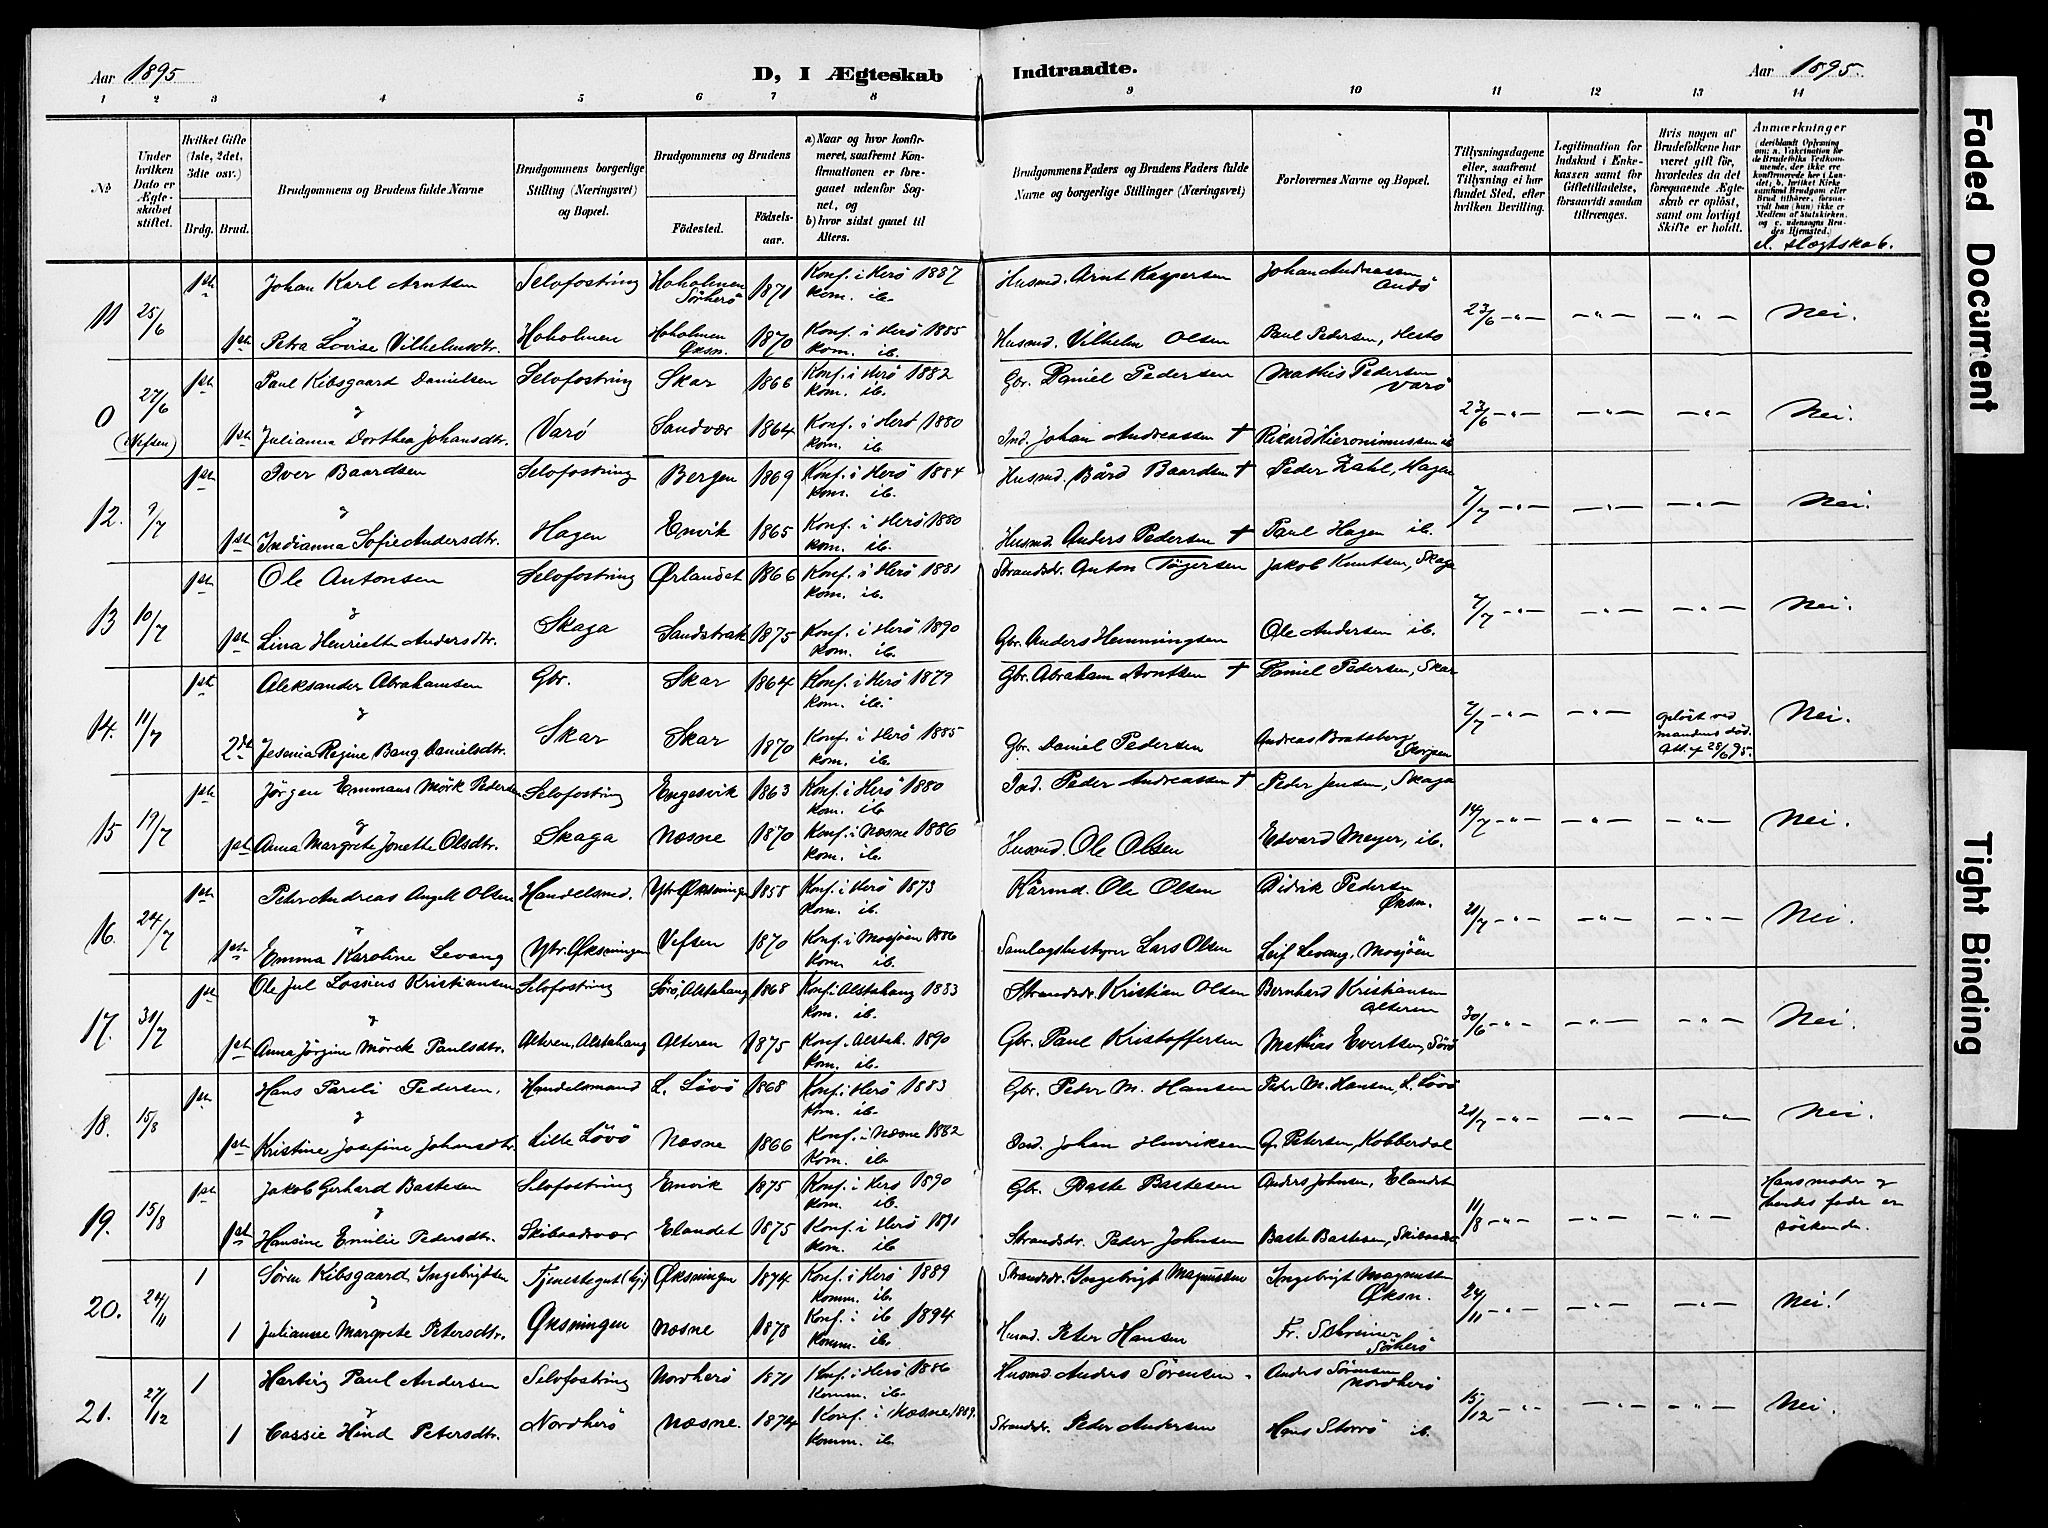 Aar 1895
D, I Ægteskab
Indtraadte.
Aar 1895.
1 2 3 4 5 6 7 8 9 10 11 12 13 14
No
Under hvilken Dato er Ægteskabet stiftet.
Hvilket Gifte (1ste, 2det, 3die osv.)
Brdg. Brud.
Brudgommens og Brudens fulde Navne
Brudgommens borgerlige Stilling (Næringsvei) og Bopæl.
Brudgommens og Brudens
Fødested.
Fødselsaar.
a) Naar og hvor konfirmeret, saafremt Konfirmationen er foregaaet udenfor Sognet, og
b) hvor sidst gaaet til Alters.
Brudgommens Faders og Brudens Faders fulde Navne og borgerlige Stillinger (Næringsvei)
Forlovernes Navne og Bopæl.
Tillysningsdagene eller, saafremt Tillysning ei har fundet Sted, efter hvilken Bevilling.
Legitimation for Indskud i Enkekassen samt for Giftetilladelse, forsaavidt saadan tiltrænges.
Hvis nogen af Brudefolkene har været gift før, hvorledes da det foregaaende Ægteskab er opløst, samt om lovligt Skifte er holdt.
Anmærkninger (deriblandt Oplysning om: a. Vakcination for de Brudefolks Vedkommende, der ikke ere konfirmerede her i Landet; b. hvilket Kirkesamfund Brudgom eller Brud tilhører, forsaavidt han (hun) ikke er Medlem af Statskirken, og c. udensogns Brudes Hjemsted.)
d. slægtskab.
11 25/6 1ste Johan Karl Arntsen Selvfostring Hoholmen Sörherö 1871 Konf. i Herö 1887 Kom. ib. Husmd. Arnt Kaspersen Johan Andreassen Andö 23/6 -"- -"- -"- Nei.
&
1ste Petra Lovise Vilhelmsdtr. Hoholmen Hoholmen Øksn. 1870 Konf. i Herö 1885 Kom. ib. Husmd. Vilhelm Olsen Paul Pedersen, Hestö
0 27/6 (Vefsen) 1ste Paul Kibsgaard Danielsen Selvfostring Skar 1866 Konf. i Herö 1882 Kom. ib. Gbr. Daniel Pedersen Mathis Pedersen Varö 23/6 -"- -"- -"- Nei.
&
1ste Julianna Dorthea Johansdtr. Varö Sandvær 1864 Konf. i Herö 1880 kom. ib. Ind. Johan Andreassen † Rikard Hieronimussen ib
12. 9/7 1ste Iver Baardsen Selvfostring Bergen 1869 Konf. i Herö 1884 Kom. ib. Husmd. Bård Baardsen † Peder Zahl, Hagen 7/7 -"- -"- -"- Nei.
&
1ste Indianna Sofie Andersdtr. Hagen Envik 1865 Konf. i Herö 1880 Kom. ib. Husmd. Anders Pedersen † Paul Hagen ib.
13 10/7 1ste Ole Antonsen Selvfostring Ørlandet 1866 Konf. i Herö 1881 Kom. ib. Strandsdr. Anton Tögersen Jakob Knutsen, Skaga 7/7 -"- -"- -"- Nei.
&
1ste Lina Henriette Andersdtr. Skaga Sandstrak 1875 Konf. i Herö 1890 Kom. ib. Gbr. Anders Hemmingsen Ole Andersen ib.
14. 11/7 1ste Aleksander Abrahamsen Gbr. Skar 1864 Konf. i Herö 1879 kom. ib. Gbr. Abraham Arntsen † Daniel Pedersen, Skar 7/7 -"- -"- opløst ved mandens död. Att. af 28/6 95. Nei.
&
2det Jesenia Regine Bang Danielsdtr. Skar Skar 1870 Konf. i Herö 1885 Kom. ib. Gbr. Daniel Pedersen Andreas Braatsberg Skorpen
15 19/7 1ste Jörgen Emmaus Mörk Pedersen Selvfostring Engesvik 1863 Konf. i Herö 1880 Kom. ib. Ind. Peder Andreassen † Peder Jensen, Skaga 14/7 -"- -"- -"- Nei.
&
1ste Anna Margrete Jonette Olsdtr. Skaga Næsne 1870 Konf. i Næsne 1886 Kom. ib. Husmd. Ole Olsen Edvard Meyer, ib.
16. 24/7 1ste Peter Andreas Angell Olsen Handelsmd. Ytr. Øksningen 1858 Konf. i Herö 1873 Kom. ib. Kårmd. Ole Olsen Didrik Pedersen Øksn. 21/7 -"- -"- -"- Nei.
&
1ste Emma Karoline Levang Ytr. Øksningen Vefsen 1870 Konf. i Mosjöen 1886 Kom. ib. Samlagsbestyrer Lars Olsen Leif Levang, Mosjöen
17. 31/7 1ste Ole Jul Lossius Kristiansen Selvfostring Sörö, Alstahaug 1868 Konf. i Alstahaug 1883 Kom. ib. Strandsdr. Kristian Olsen Bernhard Kristiansen Alteren 30/6 -"- -"- -"- Nei.
&
1ste Anna Jörgine Mörck Paulsdtr. Alteren, Alstahaug Alteren 1875 Konf. Alstah. 1890 Kom. ib. Gbr. Paul Kristoffersen Mathias Evertsen, Sörö
18. 15/8 1ste Hans Pareli Pedersen, Handelsmand L. Lövö 1868 Konf. i Herö 1883 Kom. ib. Gbr. Peder M. Hansen Peder M. Hansen, L. Lövö 21/7 -"- -"- -"- Nei.
&
1ste Kristine Josefine Johansdtr. Lille Lövö Næsne 1866 Konf. i Næsne 1882 Kom. ib. Ind. Johan Henriksen G. Petersen, Kobberdal
19. 15/8 1ste Jakob Gerhard Bastesen Selvfostring Envik 1875 Konf. i Herö 1890 Kom. ib. Gbr. Baste Bastesen Anders Johnsen, Elandet 11/8 -"- -"- -"- Hans moder & hendes fader er söskende.
&
1ste Hansine Emilie Pedersdtr. Skibaadsvær Elandet 1875 Konf. i Herö 1891 Kom. ib. Strandsdr. Peder Johnsen Baste Bastesen, Skibaadsv
20. 24/11 1 Sören Kibsgaard Ingebrigtsen Tjenestegut (hj) Øksningen 1874 Konf. i Herö 1889 Komm. ib. Strandsdr. Ingebrigt Magnussen Ingebrigt Magnussen Øksn. 24/11 -"- -"- -"- Nei!
&
1 Julianne Margrete Petersdtr. Øksningen Næsne 1878 Konf. i ib 1894 Komm. ib. Husmd. Peter Hansen Fr. Schreiner Sörherö
21. 27/12 1 Hartvig Paul Andersen Selvfostring Nordherö 1871 Konf. i Herö 1886 Komm. ib. Husmd Anders Sörensen Anders Sörensen Nordherö 15/12 -"- -"- -"- Nei.
&
1 Cassie Hind Petersdtr. Nordherö Næsne. 1874 Konf. i Næsne 1889. Komm. ib. Strandsdr. Peder Andersen Hans Storrö ib.
Faded Document
Tight Binding